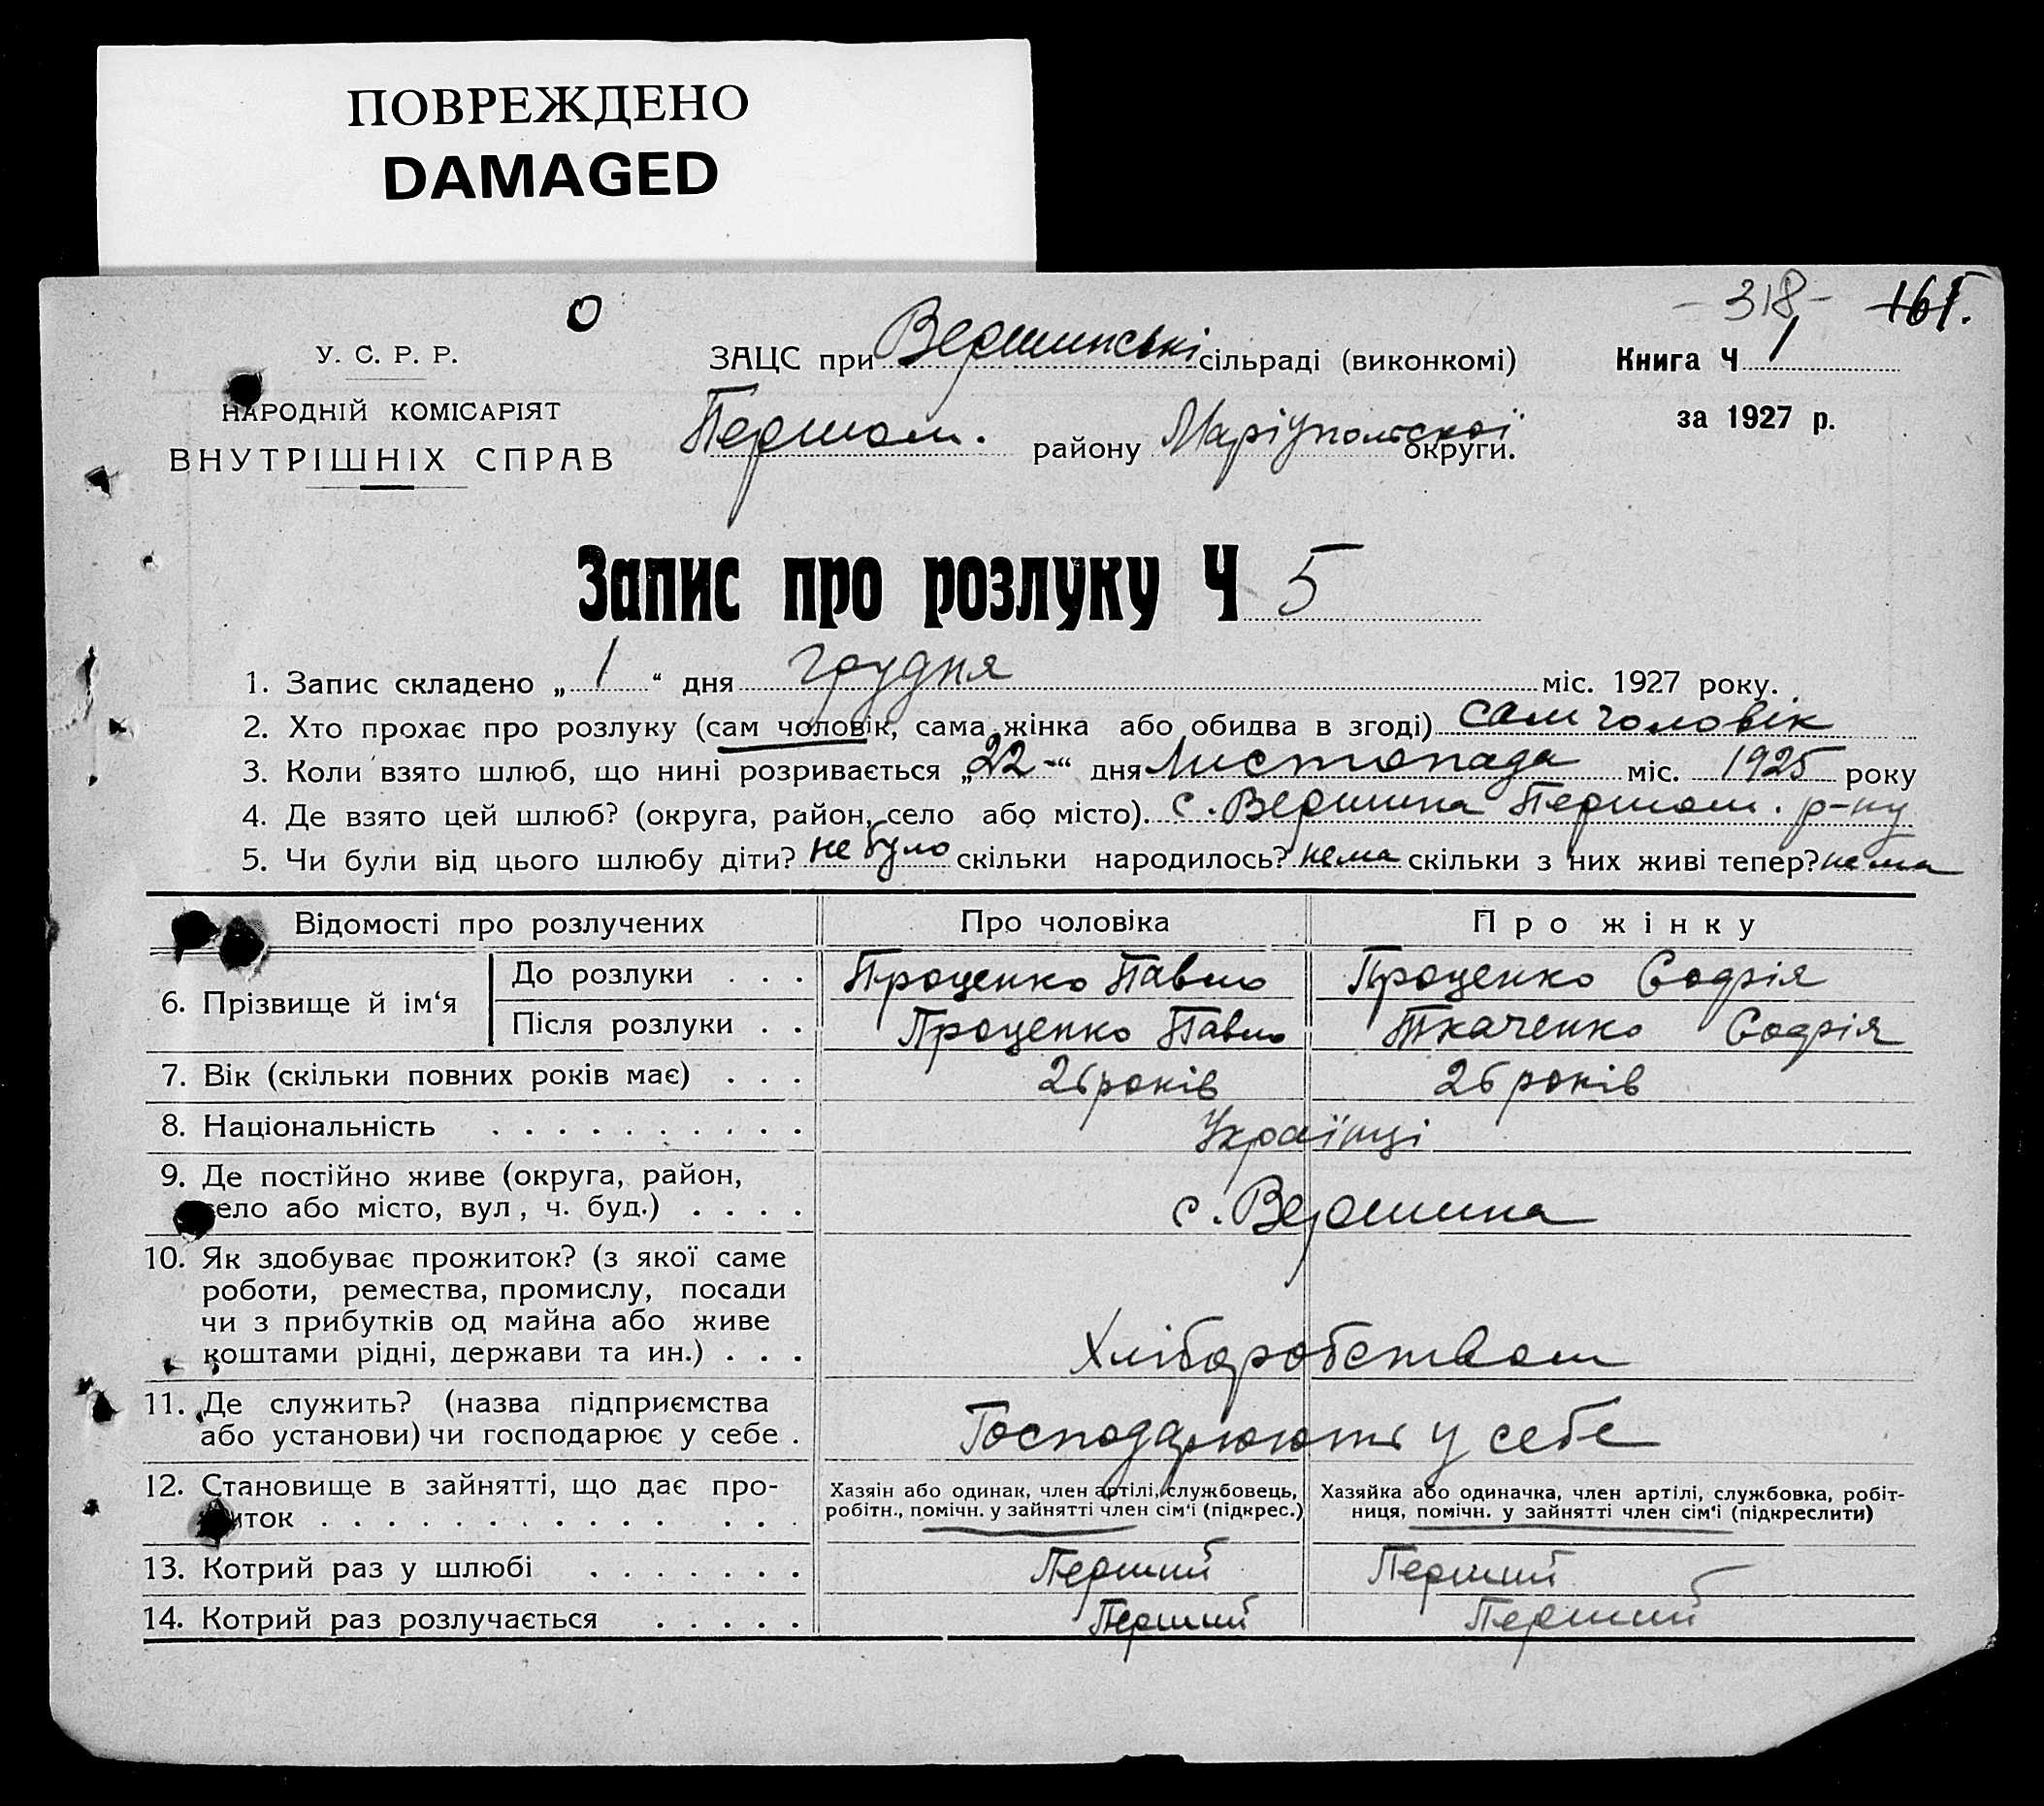 ПОВРЕЖДЕНО
DAMAGED
О
-318-
У. С. Р. Р.
ЗАЦС при Вершинські сільраді (виконкомі)
Книга Ч 1
НАРОДНІЙ КОМІСАРІЯТ
ВНУТРІШНІХ СПРАВ
Першом. району Маріупольскої округи.
за 1927 р.
Запис про розлуку Ч 5
1. Запис складено „ 1 “ дня грудня міс. 1927 року.
2. Хто прохає про розлуку (сам чоловік, сама жінка або обидва в згоді) сам чоловік
3. Коли взято шлюб, що нині розривається „22-“ дня Листопада міс. 1925 року
4. Де взято цей шлюб? (округа, район, село або місто). с. Вершина Першом. р-ну
5. Чи були від цього шлюбу діти? не було скільки народилось? нема скільки з них живі тепер? нема
Відомості про розлучених Про чоловіка Про жінку
6. Прізвище й ім‘я До розлуки . . . Проценко Павло Проценко Софія
Після розлуки . . Проценко Павло Ткаченко Софія
7. Вік (скільки повних років має) . . . 26 років 26 років
8. Національність . . . . . . . . . . Українці
9. Де постійно живе (округа, район,
село або місто, вул, ч. буд.) . . . . с. Вершина
10. Як здобуває прожиток? (з якої саме
роботи, ремества, промислу, посади
чи з прибутків од майна або живе
коштами рідні, держави та ин.) . . . Хліборобством
11. Де служить? (назва підприємства
або установи) чи господарює у себе . Господарюють у себе
12. Становище в зайнятті, що дає про-
житок . . . . . . . . . . . . .
Хазяін або одинак, член артілі, службовець,
робітн., помічн. у зайнятті член сім‘і (підкрес.)
Хазяйка або одиначка, член артілі, службовка, робіт-
ниця, помічн. у зайнятті член сім‘і (підкреслити)
13. Котрий раз у шлюбі . . . . . . . Перший Перший
14. Котрий раз розлучається . . . . . Перший Перший